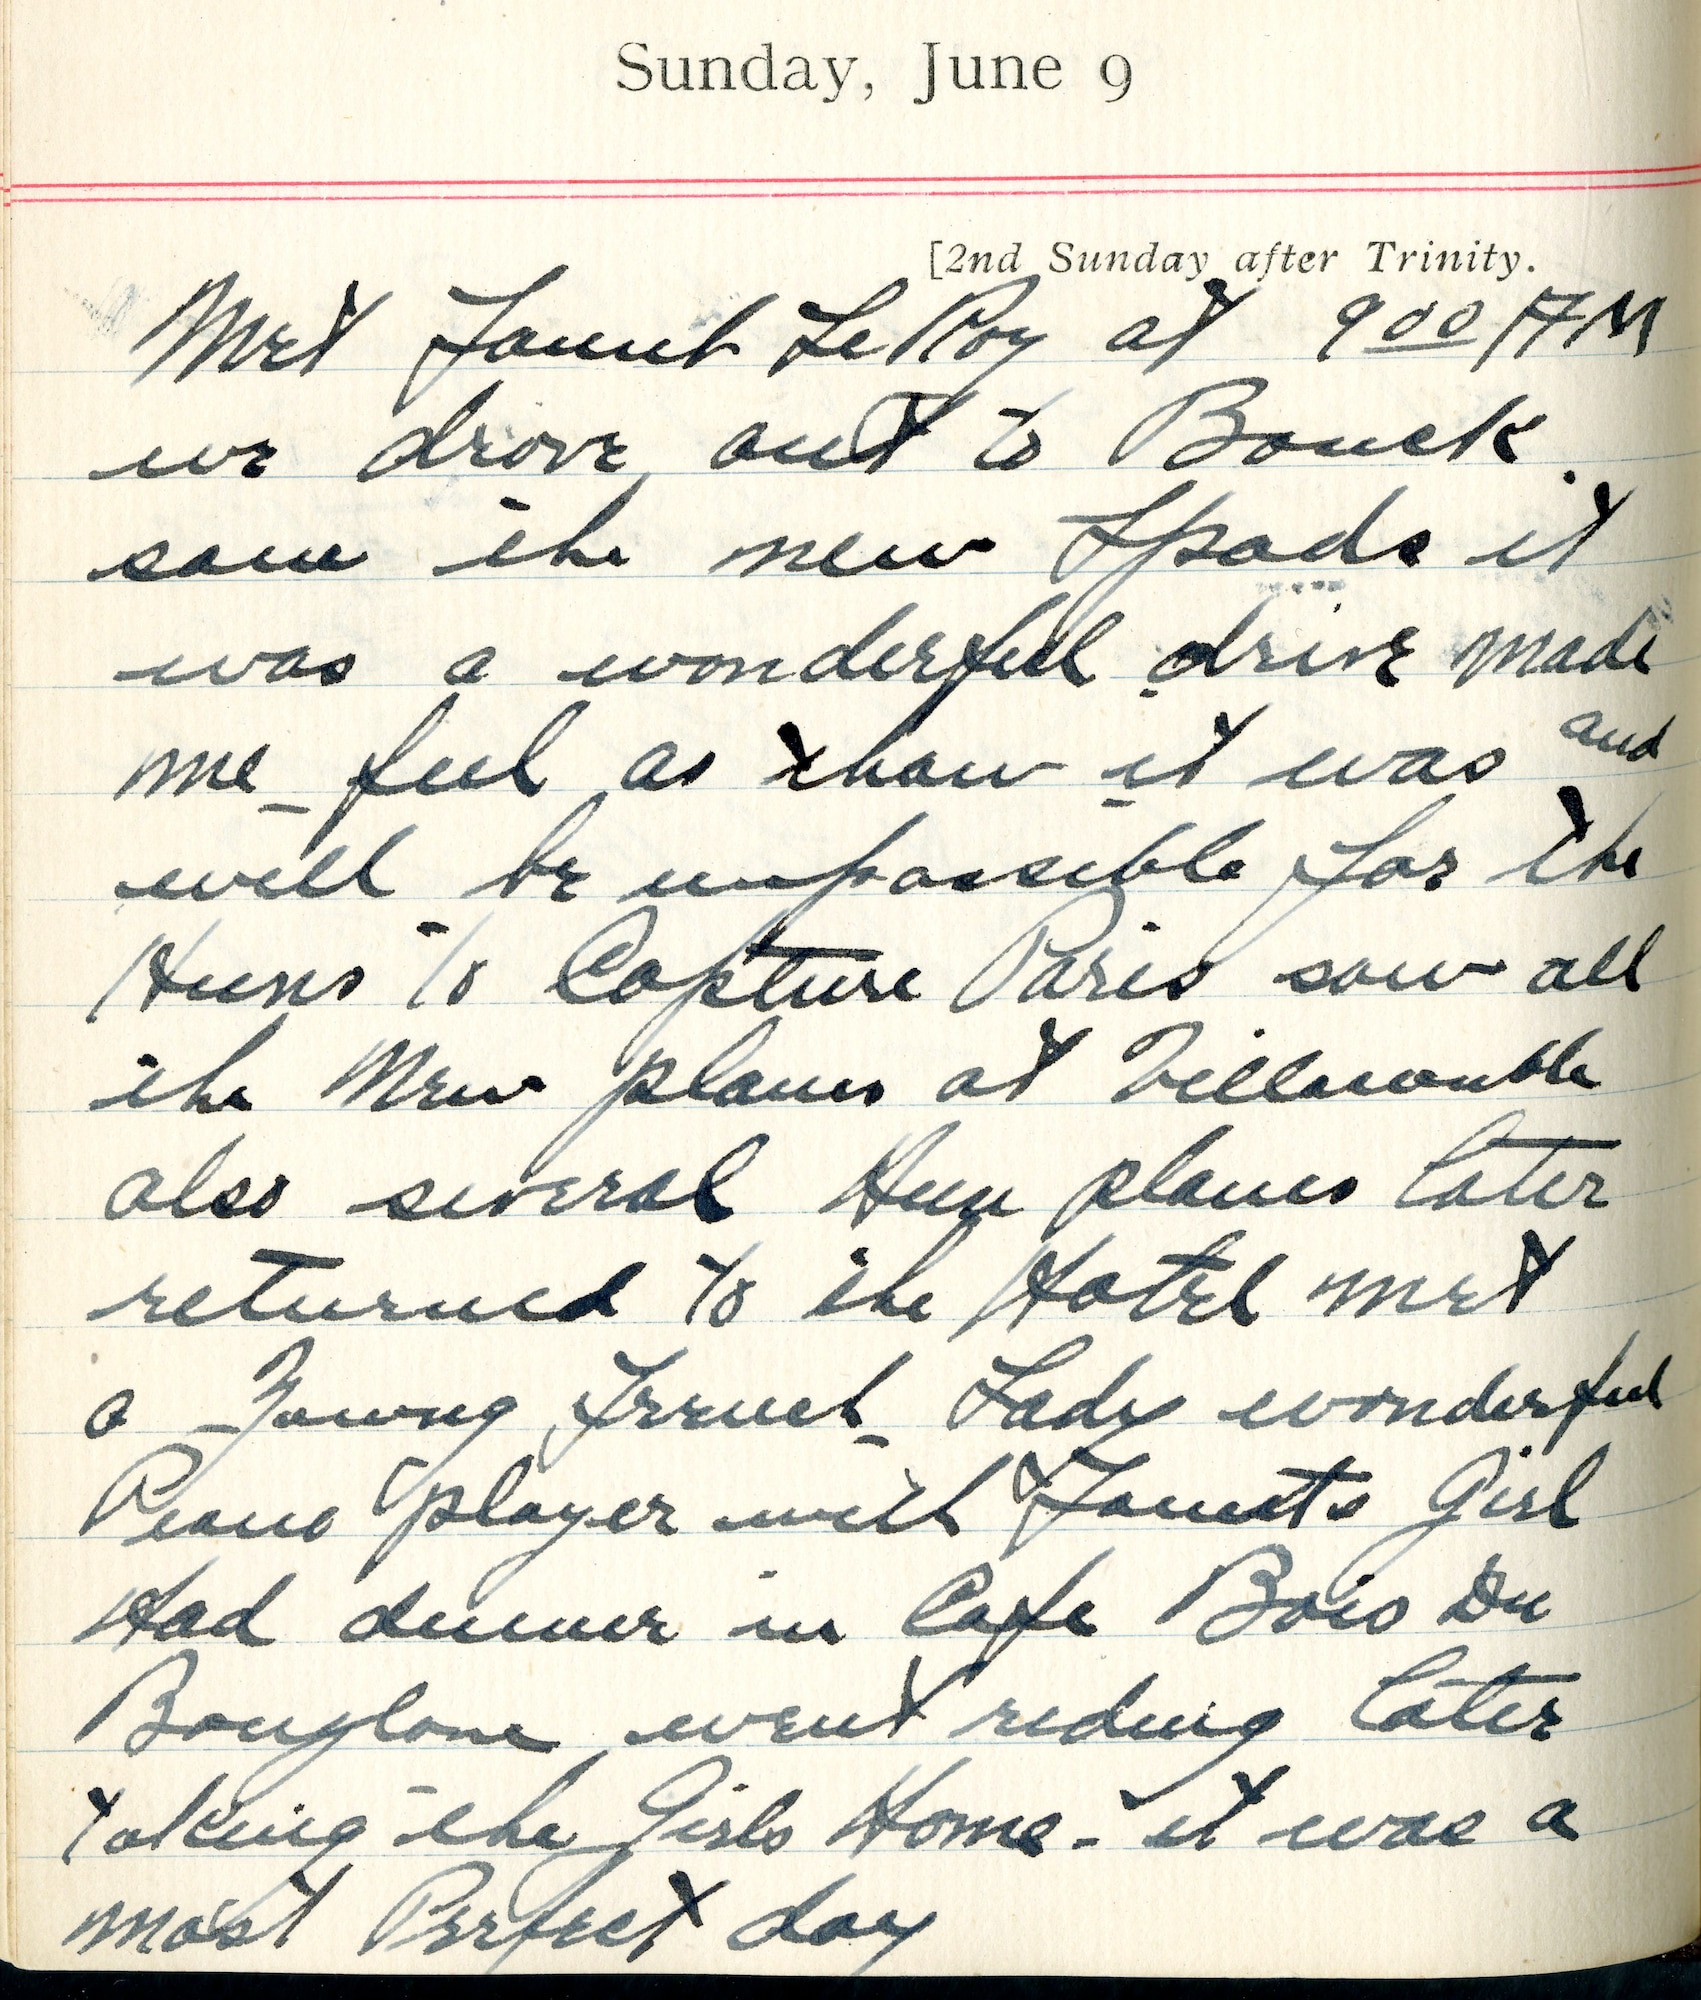 Sunday, June 9
[2nd Sunday after Trinity.
Met Jannet LeRoy at 9 00 AM
we drove out to Bouck.
saw the new Spads it
was a wonderful drive made
me feel as thow it was and
will be impossible for the
Huns to Capture Paris saw all
the New planes at
also several Hun planes later
returned to the Hotel met
a Young French Lady wonderful
Piano player with Girl
Had dinner in Cafe Bois Du
went riding later
taking the Girls Home - it was a
most Perfect day